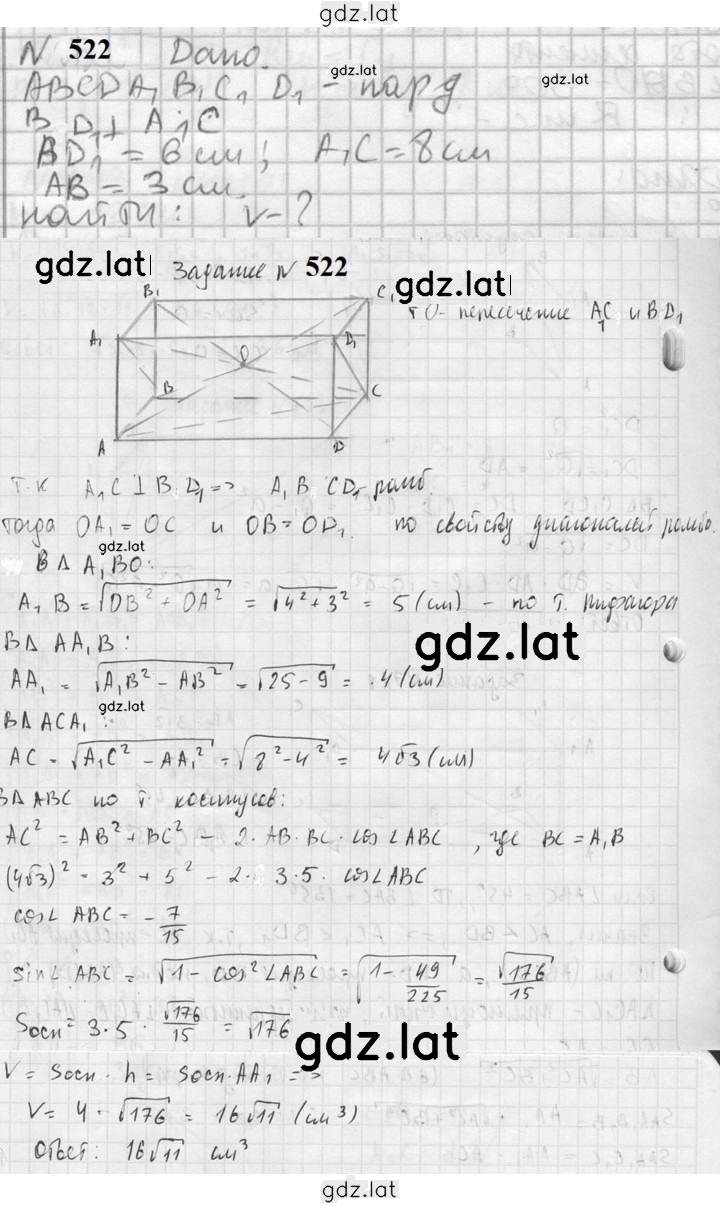 gdz.lat
N 522 Дано.
gdz.lat
gdz.lat
ABCDA₁B₁C₁D₁ - пар д
BD₁⊥A₁C
BD₁ = 6 см; A₁C = 8 см
AB = 3 см.
найти: V-?
gdz.lat
Задание N 522
gdz.lat
B₁
C₁
т O - пересечение A₁C и BD₁
A₁
D₁
O
B
C
A
D
т.к A₁C ⊥ B D₁ => A₁ B CD₁ - ромб.
тогда OA₁ = OC и OB = OD₁. по свойству диагоналей ромба.
gdz.lat
В Δ A₁BO:
A₁B = √OB² + OA² = √4² + 3² = 5 (см) - по т. Пифагора
В Δ AA₁B:
gdz.lat
AA₁ = √A₁B² - AB² = √25 - 9 = 4 (см)
gdz.lat
В Δ ACA₁:
AC = √A₁C² - AA₁² = √8² - 4² = 4√3 (см)
В Δ ABC по т косинусов:
AC² = AB² + BC² - 2·AB·BC·cos∠ABC, где BC = A₁B
(4√3)² = 3² + 5² - 2·3·5·cos∠ABC
cos∠ABC = -7/15
sin∠ABC = √1 - cos²∠ABC = √1 - 49/225 = √176/15
Sосн = 3·5·√176/15 = √176
gdz.lat
V = Sосн·h = Sосн·AA₁ =>
V = 4·√176 = 16√11 (см³)
Ответ: 16√11 см³
gdz.lat